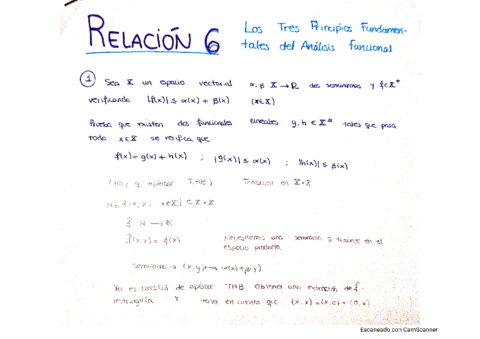 RELACIÓN 6
Los Tres Principios Fundamen-
tales del Análisis Funcional
① Sea X un espacio vectorial α, β X → R dos seminormas y f∈X#
verificando |f(x)| ≤ α(x) + β(x) (x∈X)
Prueba que existen dos funcionales lineales g, h ∈ X# tales que para
todo x∈X se verifica que
f(x) = g(x) + h(x) ; |g(x)| ≤ α(x) ; |h(x)| ≤ β(x)
THB) Trabajar en X×X
M = { (x, x) : x∈X } ⊂ X×X
f̂(x,x) = f(x) Necesitamos una seminorma en el
espacio producto.
seminorma → (x,y) ↦ α(x)+β(y)
Ya es cuestión de aplicar THB. Obtener una extensión de f̂.
y tener en cuenta que (x,x) = (x,0) + (0,x)
Escaneado con CamScanner